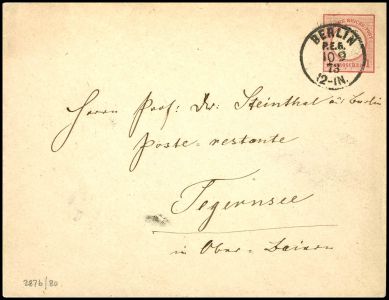 BERLIN
P.E.6.
10 9
73
12-1N.
Herrn Prof: Dr. Steinthal aus Berlin
Poste-restante
Tegernsee
in Ober-Baiern
2876/80